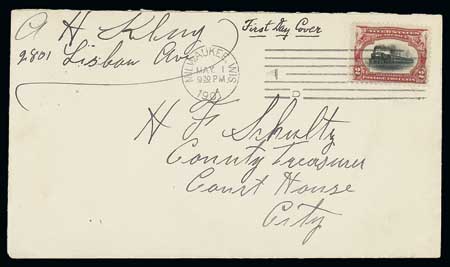 A H Kling
2801 Lisbon Ave
First Day Cover
MILWAUKEE, WIS.
MAY 1
930 PM
1901
UNITED STATES
2 2
H F Schultz
County Treasurer
Court House
City